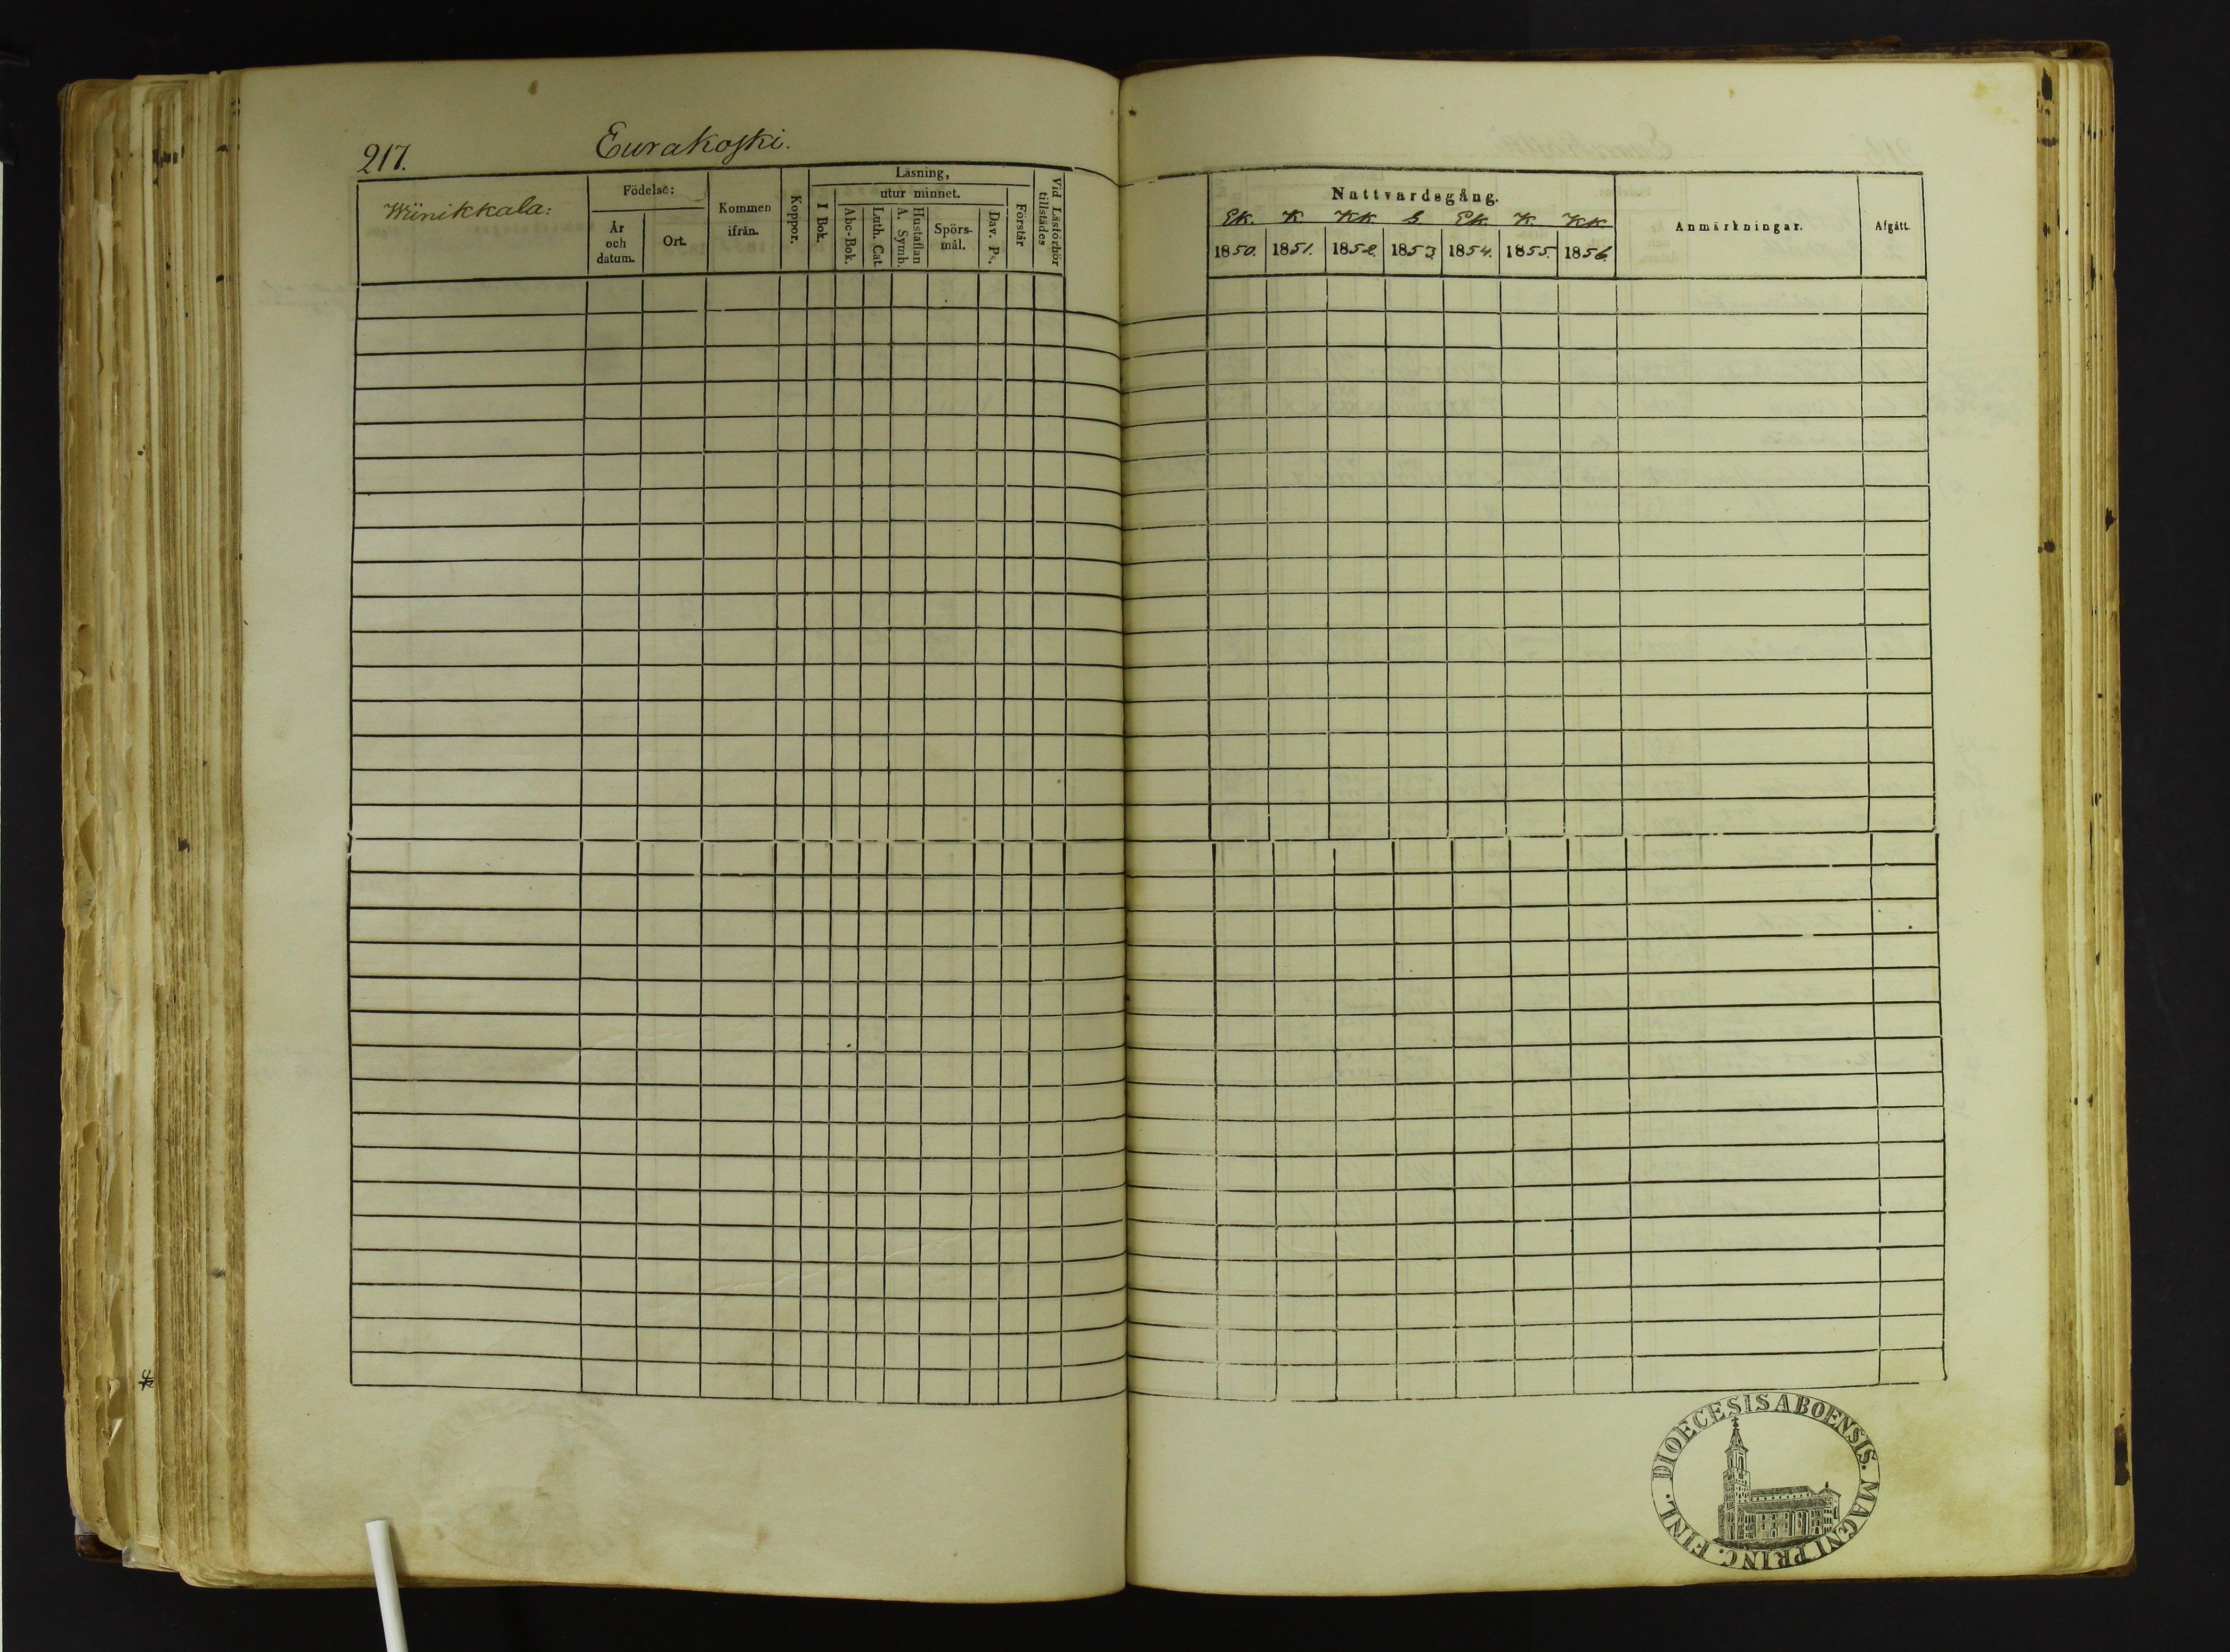 217.
Eurakoski.
Wiinikkala:
Födelse:
År
och
datum.
Ort.
Kommen
ifrån.
Koppor.
Läsning,
I Bok.
utur minnet.
Abc-Bok.
Luth. Cat.
Hustaflan
A. Symb.
Spörs-
mål.
Dav. Ps.
Förstår
Vid Läsförhör
tillstädes
Nattvardsgång.
Ek. K KK S. Ek. K. KK.
1850. 1851. 1852. 1853. 1854. 1855. 1856.
Anmärkningar.
Afgått.
DIOECESIS ABOENSIS. MAGNI PRINC. FINL.